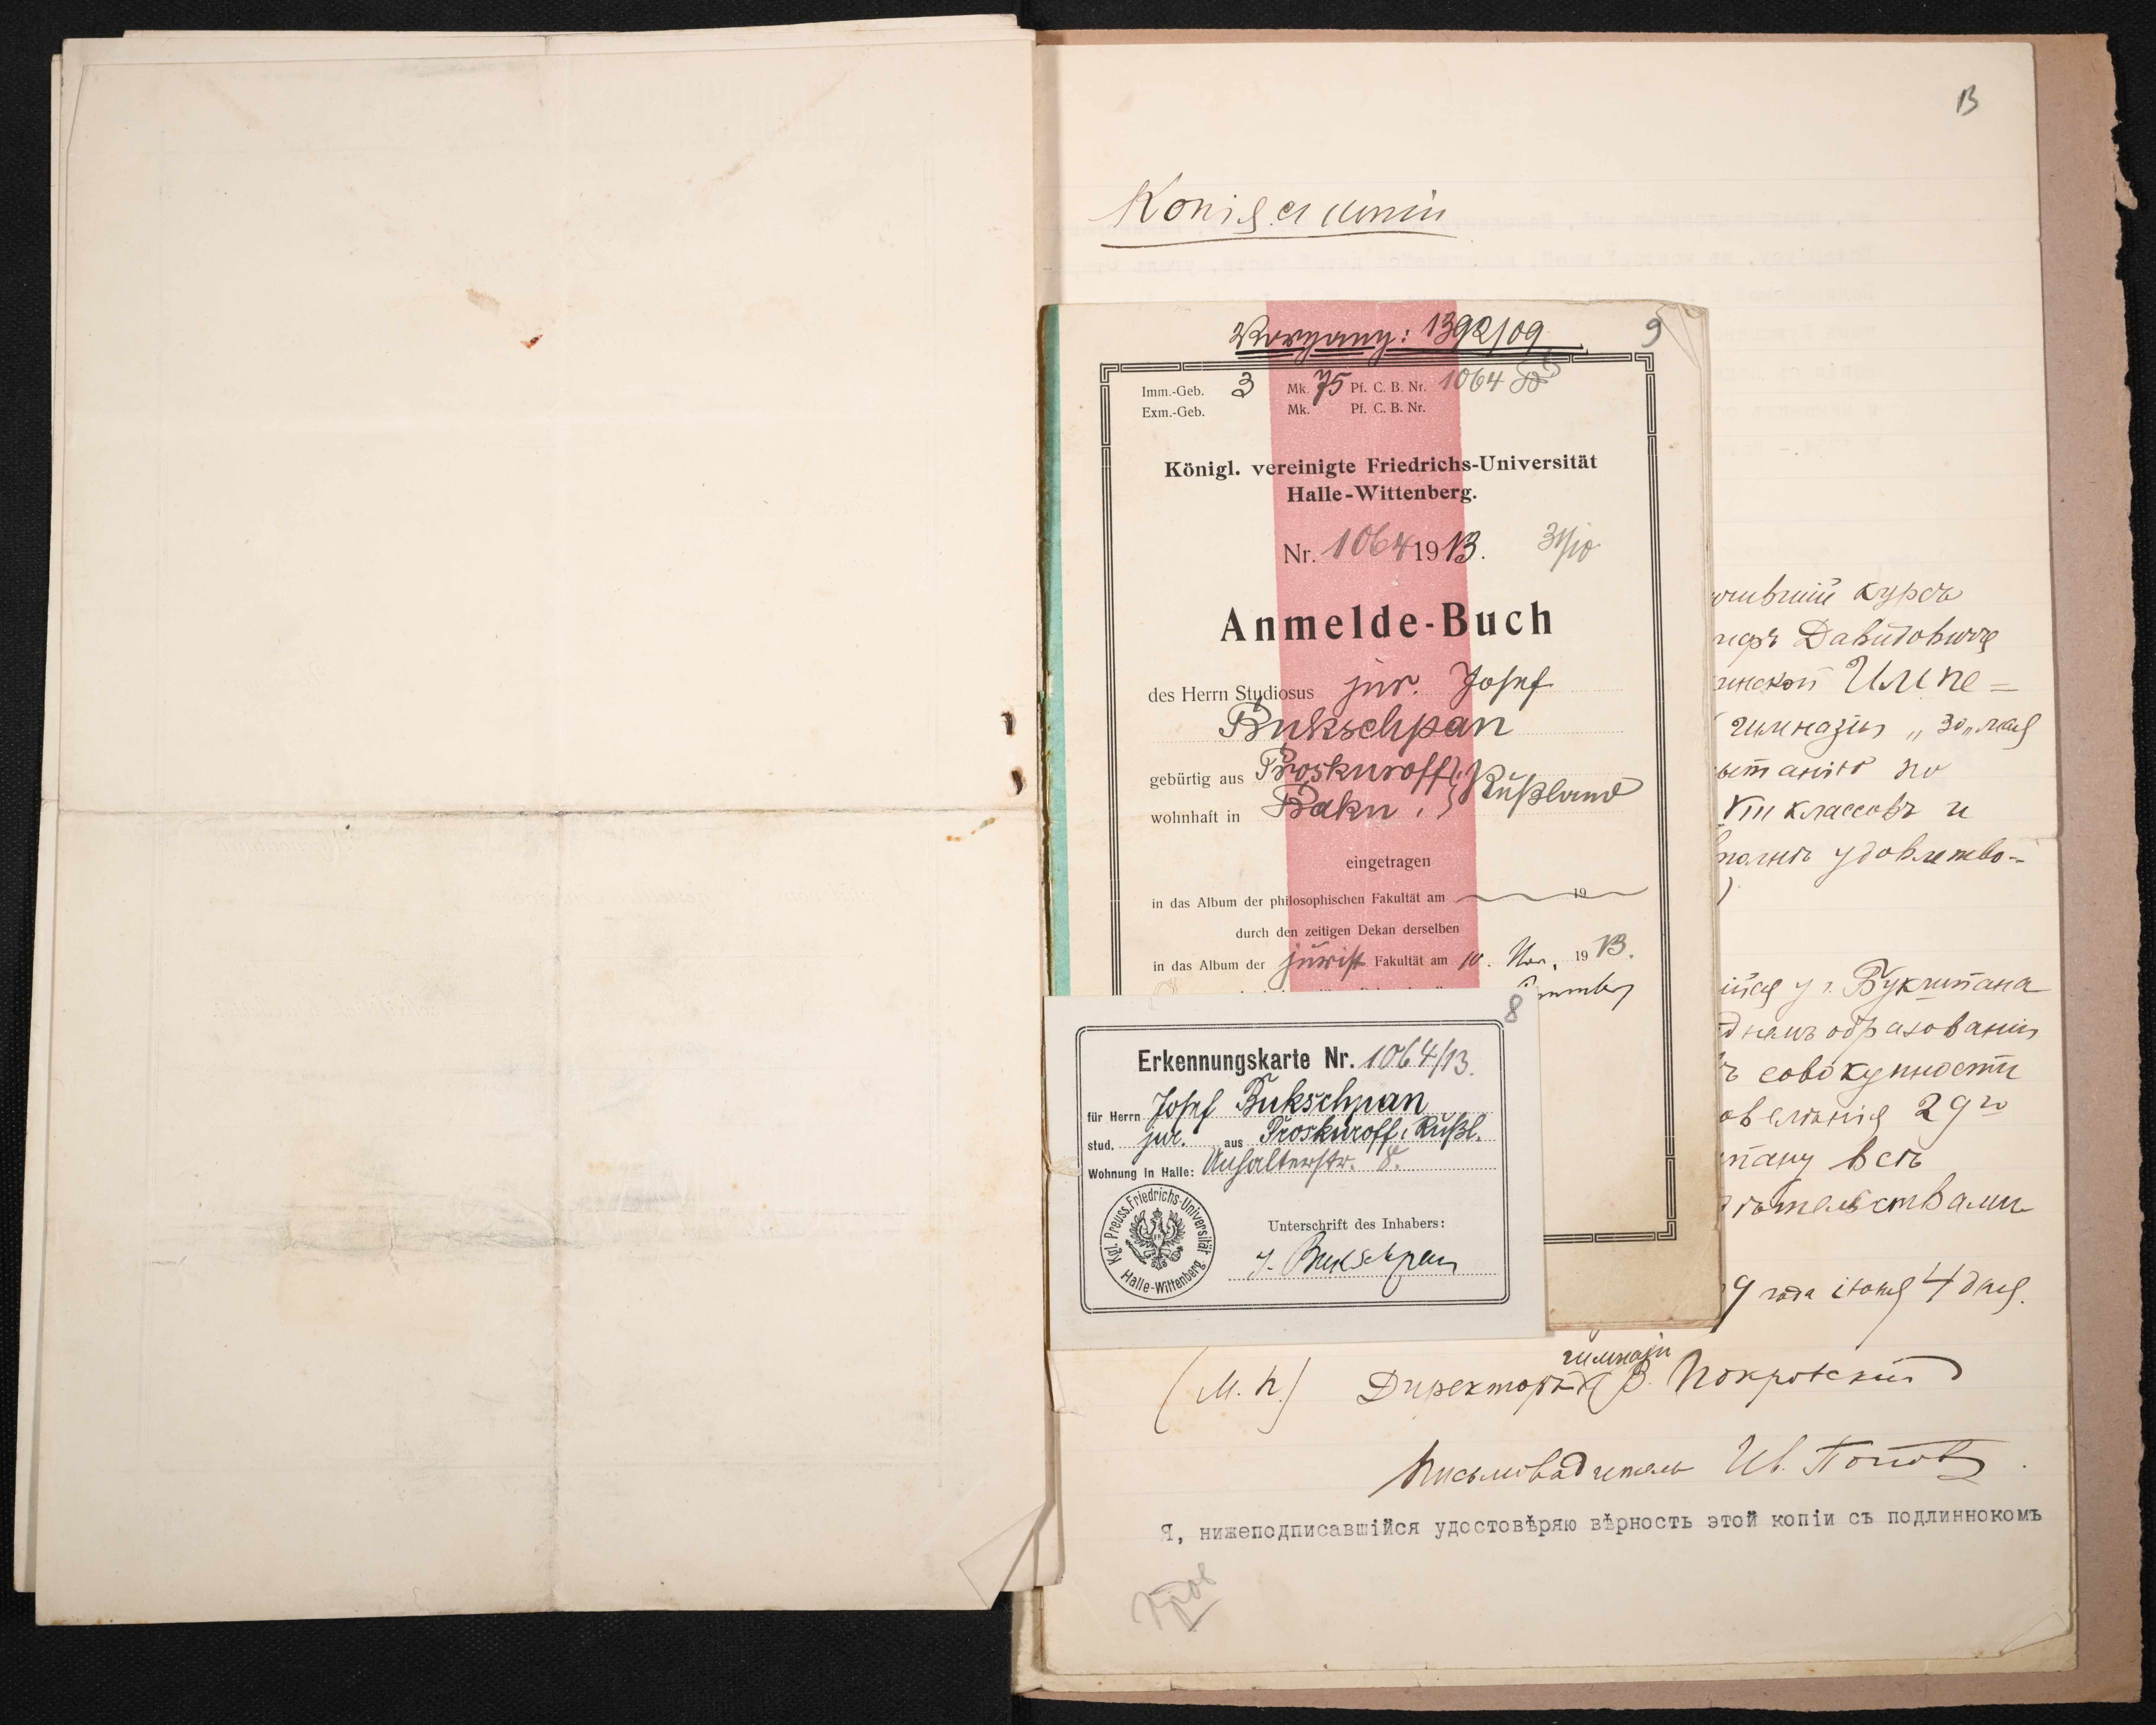 13
Копія съ копіи
Vorgang: 1392/09.
9
Imm.-Geb. 3 Mk. 75 Pf. C. B. Nr. 1064
Exm.-Geb. Mk. Pf. C. B. Nr.
Königl. vereinigte Friedrichs-Universität
Halle-Wittenberg.
Nr. 1064 1913. 31/10
Anmelde-Buch
des Herrn Studiosus jur. Josef
Bukschpan
gebürtig aus Proskuroff,
wohnhaft in Baku, Rußland
eingetragen
in das Album der philosophischen Fakultät am 19
durch den zeitigen Dekan derselben
in das Album der jurist. Fakultät am 10. Nov. 1913.
8
Erkennungskarte Nr. 1064/13.
für Herrn Josef Bukschpan
stud. jur. aus Proskuroff, Rußl.
Wohnung in Halle: Anhalterstr. 8.
Kgl. Preuss. Friedrichs-Universität Halle-Wittenberg
Unterschrift des Inhabers:
J. Bukschpan
курсъ
Давидовичъ
Импе=
гимназіи „30" мая
по
VIII классовъ и
удовлетво-
г. Букшпана
образованіи
совокупности
29го
всѣ
9 года іюня 4 дня.
(М. П.) Директоръ гимназіи В. Покровскій
Письмоводитель Ив. Поповъ.
Я, нижеподписавшійся удостовѣряю вѣрность этой копіи съ подлиннокомъ